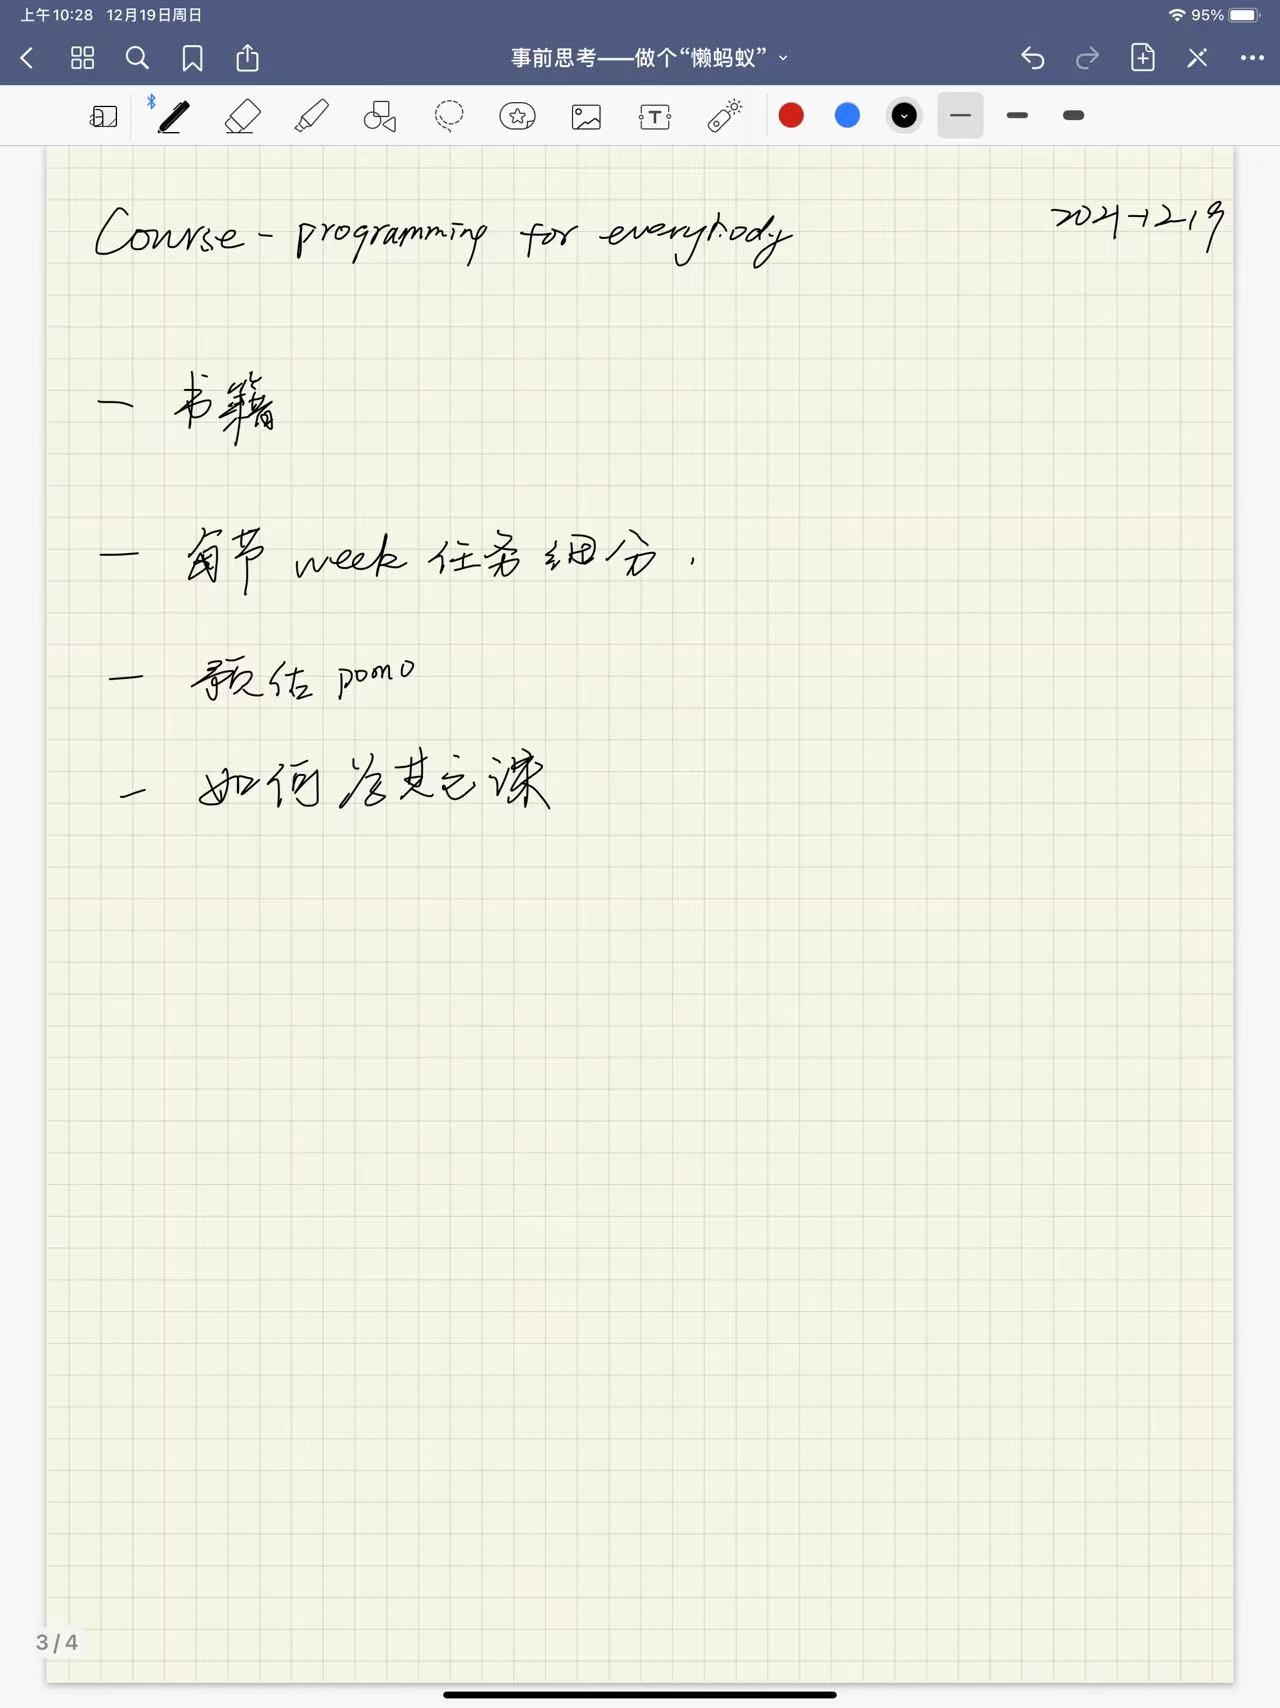 上午10:28 12月19日周日 95%
事前思考——做个“懒蚂蚁”
T
Course - programming for everybody
2021-12.19
- 书籍
- 每节 week 任务细分.
- 预估 pomo
- 如何 其它课
3/4